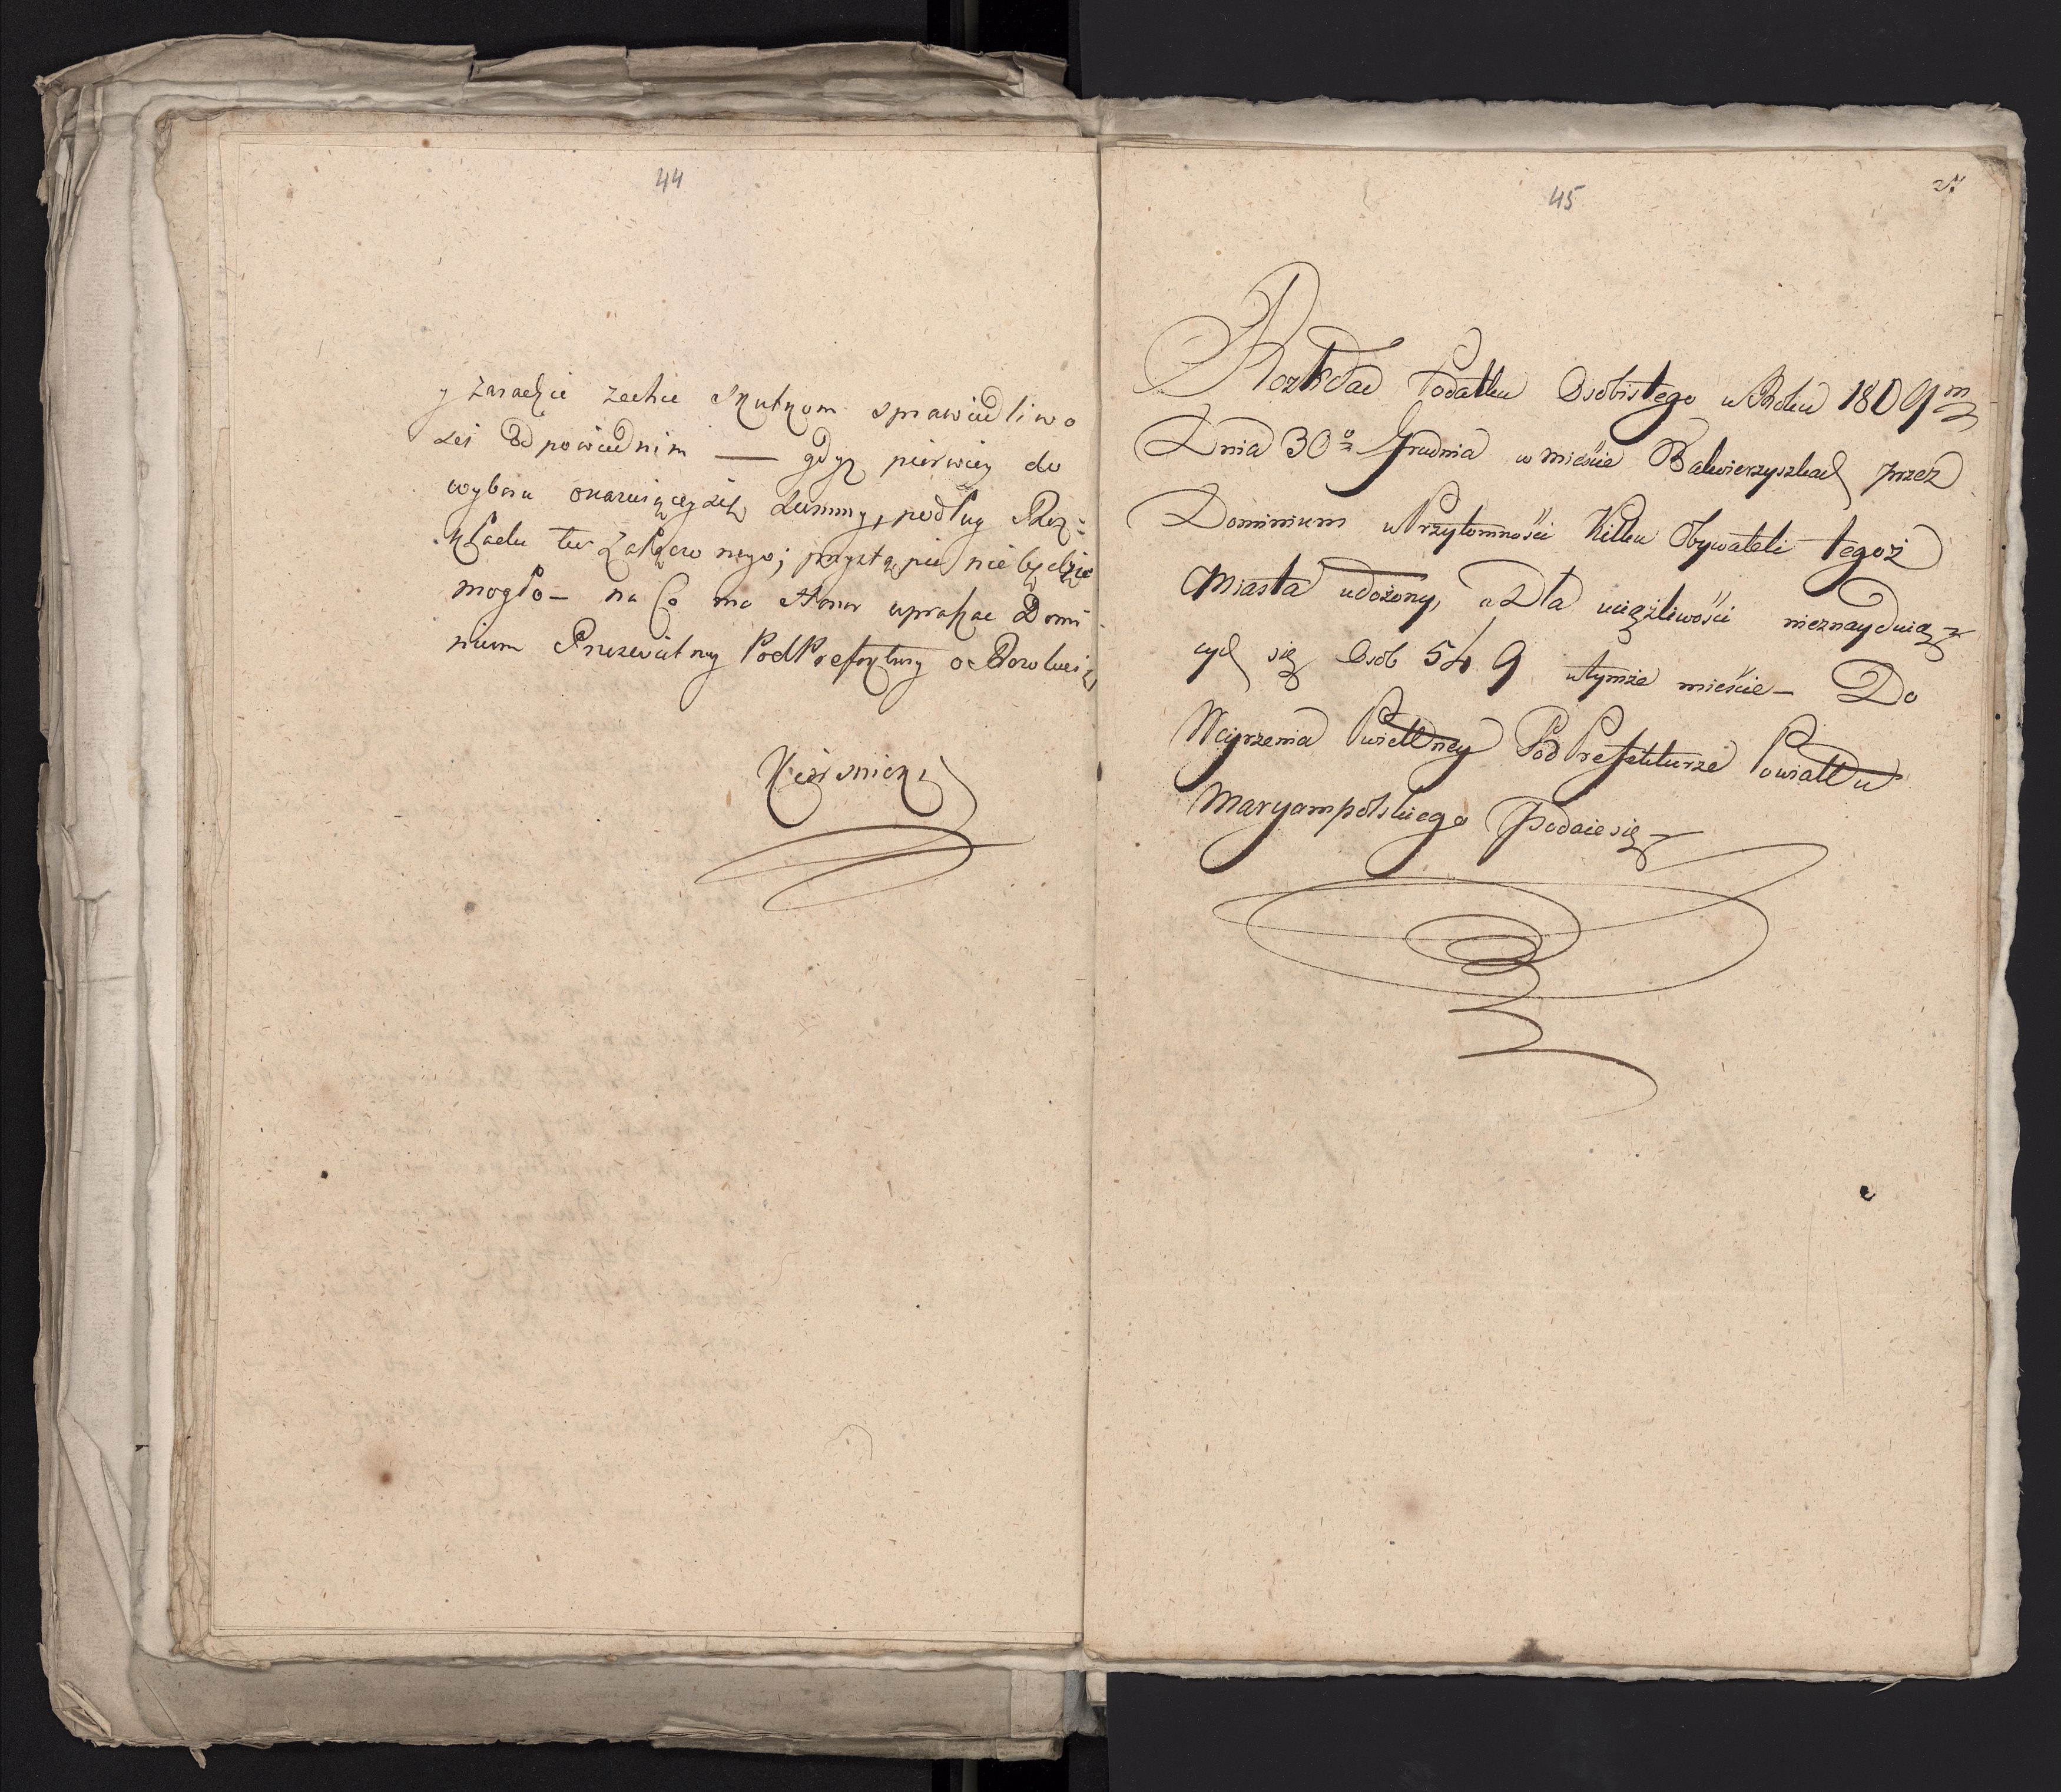 44
y zaradzić zechce skutkom sprawiedliwo
ści odpowiednim — gdyż pierwiey do
wyboru okazuiącey się Summy, podług Roz=
kładu tu załączonego; przystąpić nie będzie
mogło — na Co ma Honor upraszać Domi
nium Prześwietney PodPrefektury o Rezolucią
45
Rozkład Podatku Osobistego w Roku 1809m
Dnia 30o Grudnia w mieście Balwierzyszkach przez
Dominium w Przytomności Kilku Obywateli tegoż
Miasta udożony, a Dla uciążliwości nieznayduią
cych się Osób 549 w tymże mieście — Do
Weyrzenia Świettney Pod Prefekturze Powiattu
Maryampolskiego Podaie się